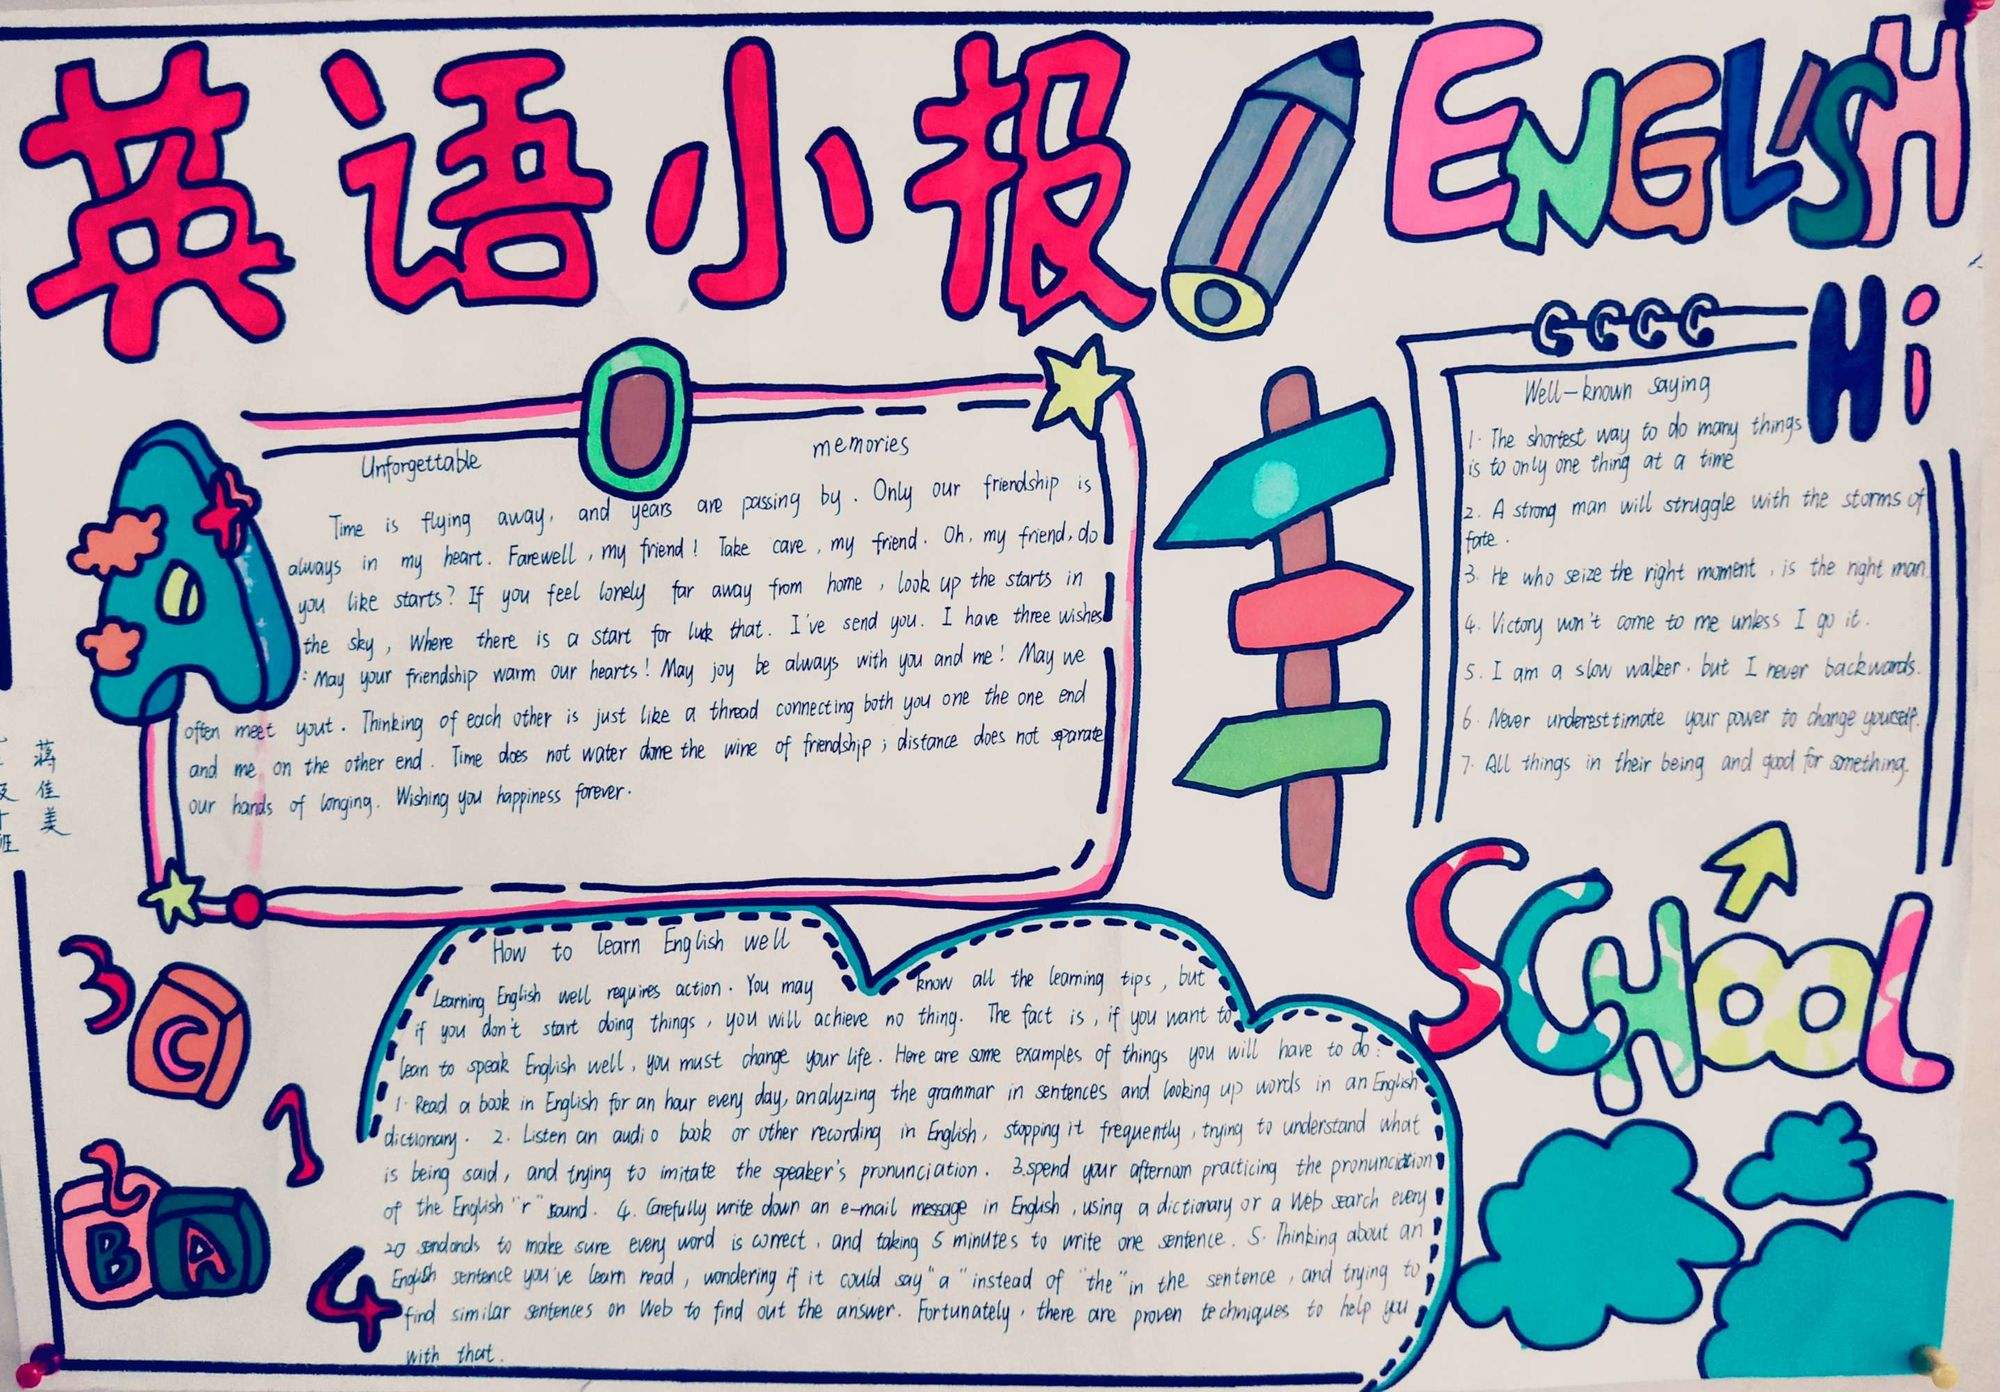 英语小报
ENGLISH
Hi
Unforgettable memories
Time is flying away, and years are passing by. Only our friendship is
always in my heart. Farewell, my friend! Take cave, my friend. Oh, my friend, do
you like starts? If you feel lonely far away from home, look up the starts in
the sky, Where there is a start for luck that. I've send you. I have three wishes
: May your friendship warm our hearts! May joy be always with you and me! May we
often meet yout. Thinking of each other is just like a thread connecting both you one the one end
and me on the other end. Time does not water done the wine of friendship; distance does not sparate
our hands of longing. Wishing you happiness forever.
Well-known saying
1. The shortest way to do many things
is to only one thing at a time
2. A strong man will struggle with the storms of
fate.
3. He who seize the right moment, is the right man
4. Victory won't come to me unless I go it.
5. I am a slow walker, but I never backwards.
6. Never underesttimate your power to change yourself.
7. All things in their being and good for something.
蒋佳美
SCHOOL
How to learn English well
Learning English well requires action. You may know all the learning tips, but
if you don't start doing things, you will achieve no thing. The fact is, if you want to
lean to speak English well, you must change your life. Here are some examples of things you will have to do:
1. Read a book in English for an hour every day, analyzing the grammar in sentences and looking up words in an English
dictionary. 2. Listen an audio book or other recording in English, stopping it frequently, trying to understand what
is being said, and trying to imitate the speaker's pronunciation. 3.spend your afternoon practicing the pronunciation
of the English "r" sound. 4. Carefully write down an e-mail message in English, using a dictionary or a Web search every
20 sendonds to make sure every word is correct, and taking 5 minutes to write one sentence. 5. Thinking about an
English sentence you've learn read, wondering if it could say "a" instead of "the" in the sentence, and trying to
find similar sentences on Web to find out the answer. Fortunately, there are proven techniques to help you
with that.
3
C
1
2
B A
4